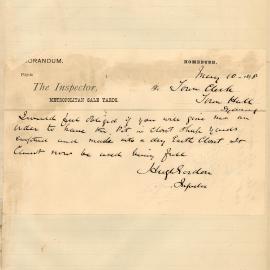 MEMORANDUM.
HOMEBUSH,
From
May 10 - 98
The Inspector,
To Town Clerk
METROPOLITAN SALE YARDS.
Town Hall
Sydney
I would feel obliged if you will give me an
order to have the Pit in Closet Yards
emptied and made into a dry Earth Closet It
cannot now be used being full
Hugh Gordon
Inspector